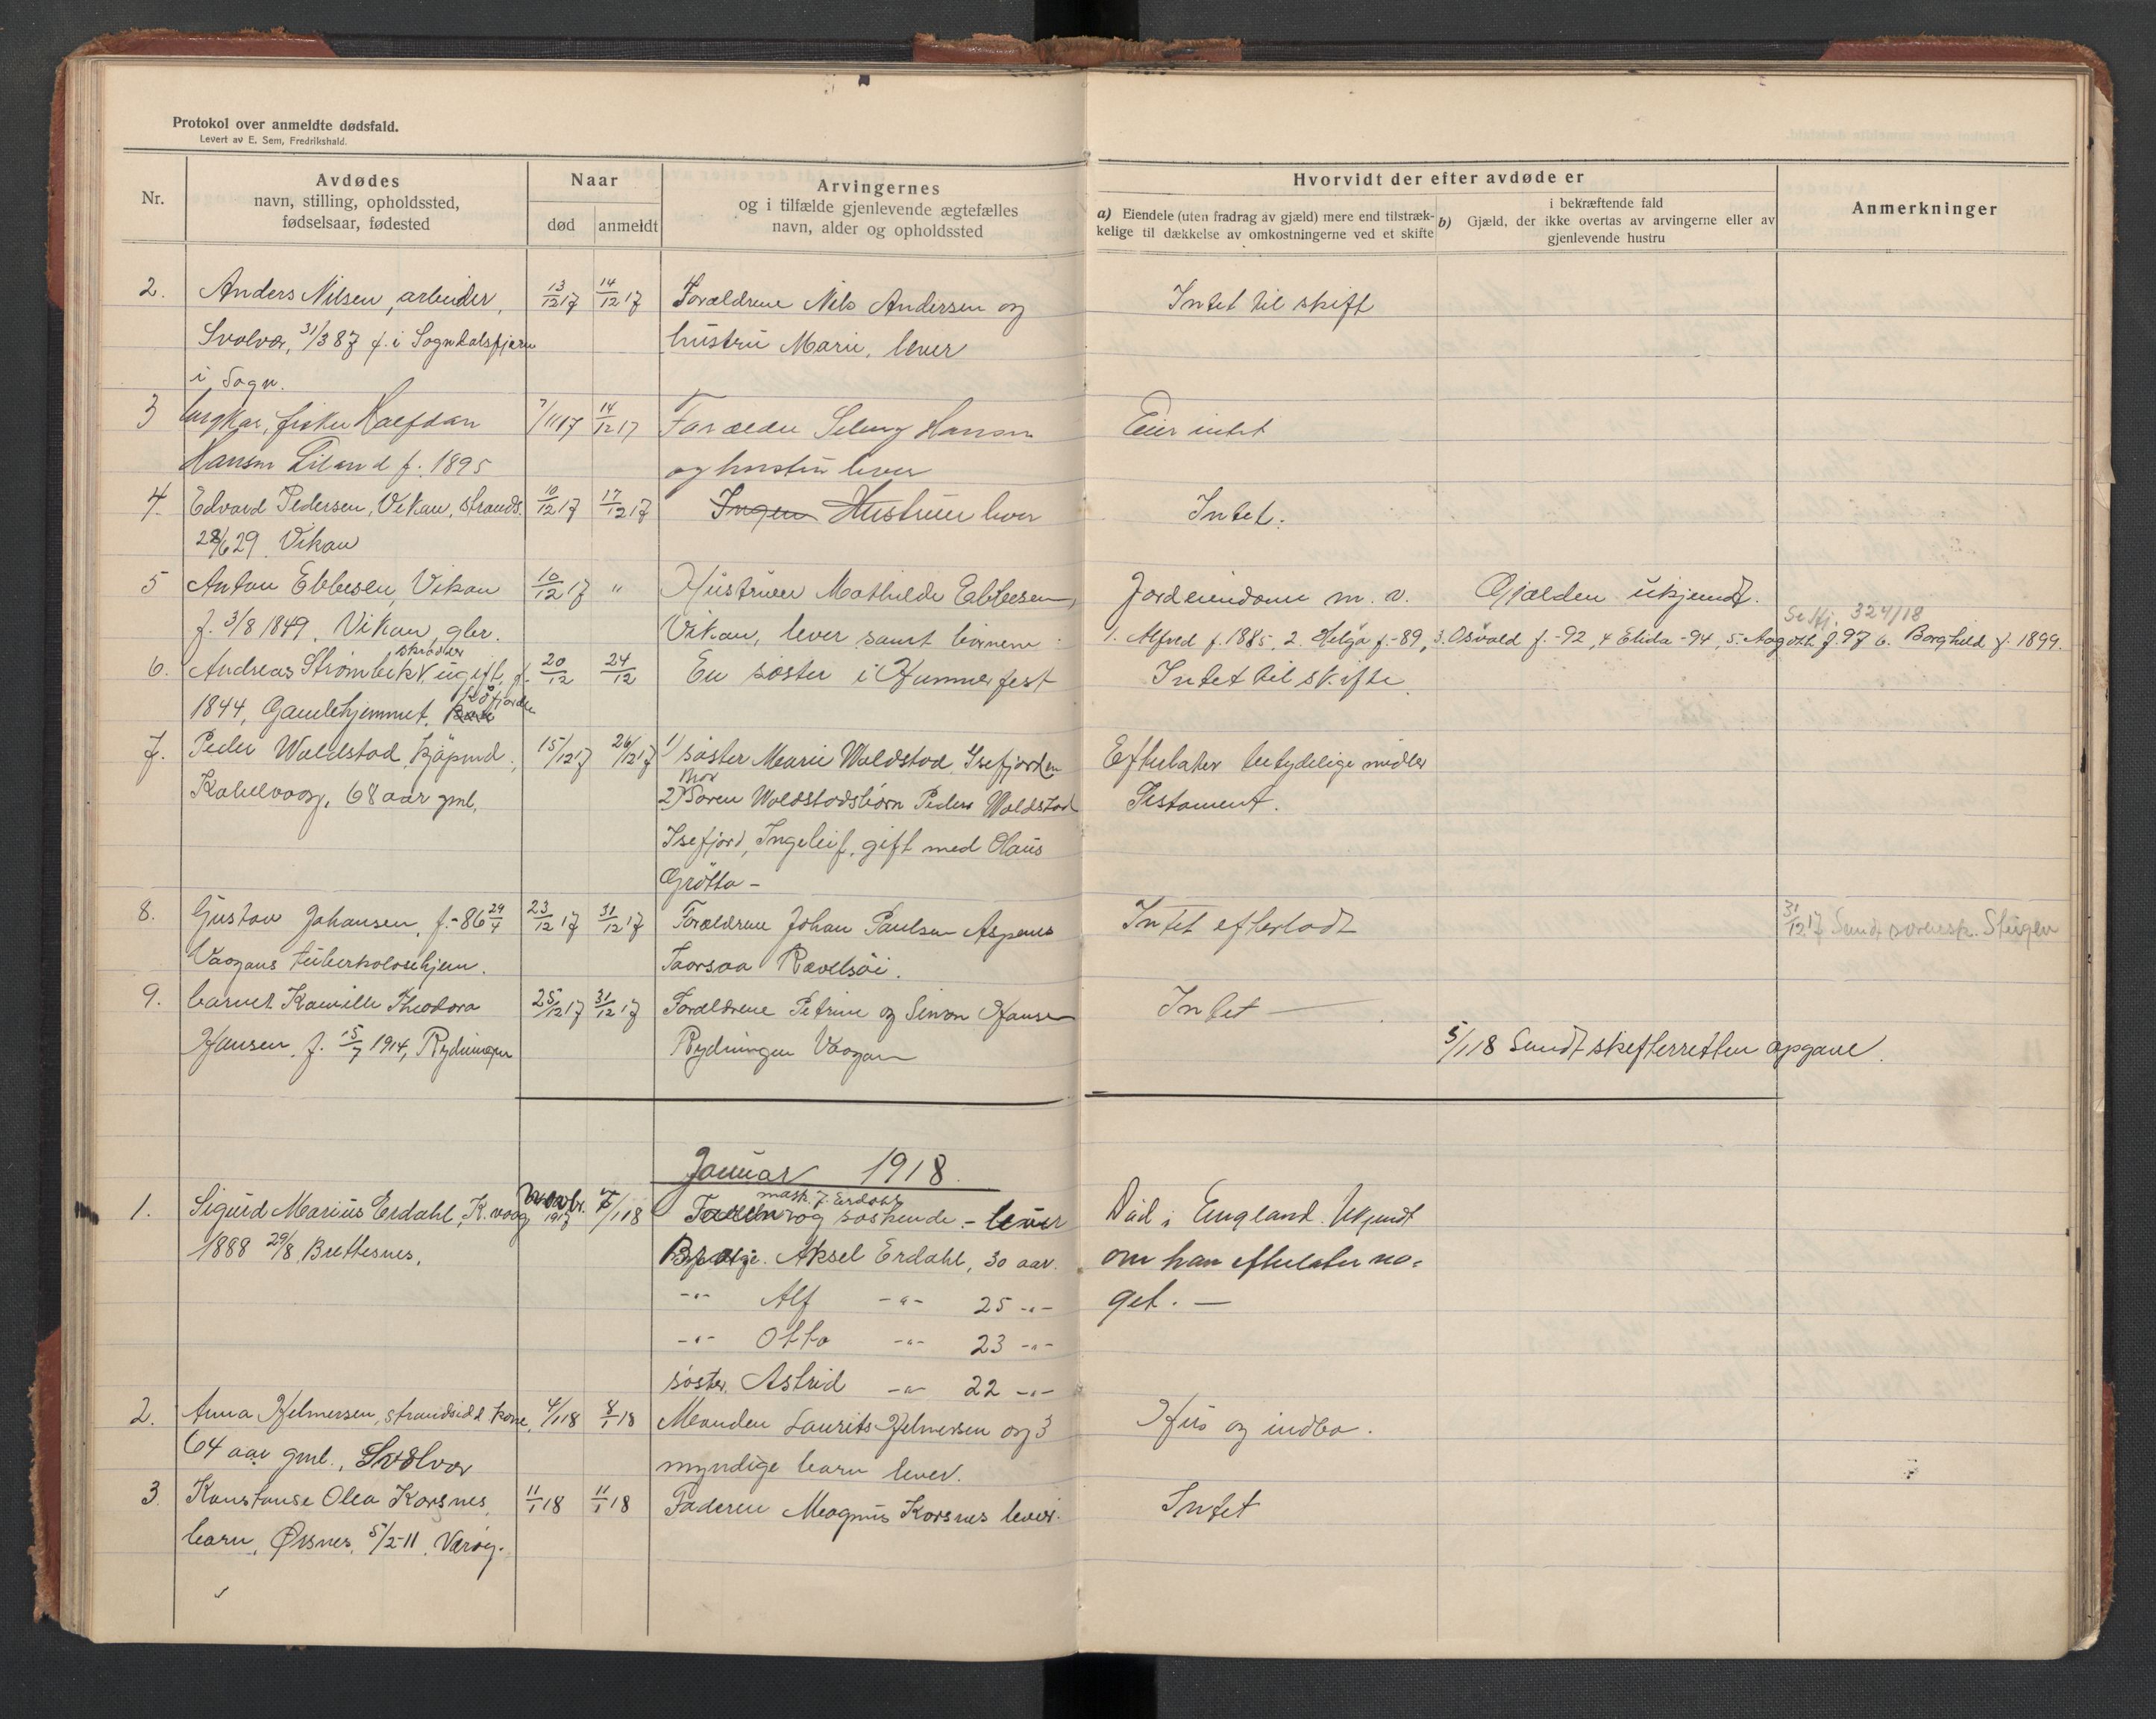 Protokol over anmeldte dødsfald.
Levert av E. Sem, Fredrikshald.
Nr.
Avdødes
navn, stilling, opholdssted,
fødselsaar, fødested
Naar
død anmeldt
Arvingernes
og i tilfælde gjenlevende ægtefælles
navn, alder og opholdssted
Hvorvidt der efter avdøde er
a) Eiendele (uten fradrag av gjæld) mere end tilstræk-
kelige til dækkelse av omkostningerne ved et skifte
i bekræftende fald
b) Gjæld, der ikke overtas av arvingerne eller av
gjenlevende hustru
Anmerkninger
2. Anders Nilsen, arbeider, 13/12 17 14/12 17 Forældrene Nils Andersen og Intet til skift
Svolvær, 31/3 87 f. i Sogndalsfjæren hustru Marie, lever
i Sogn.
3 ungkar, fisker Halfdan 7/11 17 14/12 17 Forælder Hansen Eier intet
Hansen Liland f. 1895 og hustru lever
4. Edvard Pedersen, Vikan, strands. 10/12 17 17/12 17 Ingen Hustruen lever Intet.
28/6 29 Vikan
5 Anton Ebbesen, Vikan 10/12 17 " Hustruen Mathilde Ebbesen, Jordeiendom m. v. Gjælden ukjendt.
f. 3/8 1849, Vikan, gbr. Vikan, lever samt børnene:
Se Sfj. 324/18
1. Alfred f. 1885, 2. Helga f. -89, 3. Osvald f. -92, 4 Elida -94, 5. Aagoth f. 97 6. Borghild f. 1899.
6. Andreas Strømbekk skrædder, ugift, f. 20/12 24/12 En søster i Hammerfest Intet til skifte
1844, Gamlehjemmet,
7. Peder Woldstad, kjøpmd., 15/12 17 26/12 17 1) søster Marie Woldstad, Isefjorden Efterlater betydelige midler
Kabelvaag, 68 aar gml. 2) Bror Søren Woldstads børn Peder Woldstad Testament.
Isefjord, Ingeleif, gift med Olaus
Grøtta -
8. Gustav Johansen, f. -86 24/4 23/12 17 31/12 17 Forældrene Johan Paulsen Aspenes Intet efterladt 31/12 17 Sendt sorensk. Steigen
Vaagans tuberkolosehjem. Taarsaa
9. barnet Kamille Theodora 25/12 17 31/12 17 Forældrene Petrine og Simon Hansen Intet —
Hansen, f. 15/7 1914, Rydningen Rydningen Vaagan
5/1 18 Sendt skifteretten opgave.
Januar 1918.
1. Sigurd Marius Erdahl, K.vaag novbr. 1917 7/1 18 og søskende - lever Død i England. Ukjendt
1888 29/8, Brettesnes, Aksel Erdahl, 30 aar. om han efterlater no-
-"- Alf -"- 25 -"- get. —
-"- Otto -"- 23 -"-
søster Astrid -"- 22 -"-
2. Anna Hjelmersen, strandsid. kone, 4/1 18 8/1 18 Manden Laurits Hjelmersen og 3 Hus og indbo.
64 aar gml., Svolvær myndige barn lever.
3. Konstanse Olea Korsnes, 11/1 18 11/1 18 Faderen Magnus Korsnes lever. Intet
barn, Ørsnes, 5/2-11, Værøy.